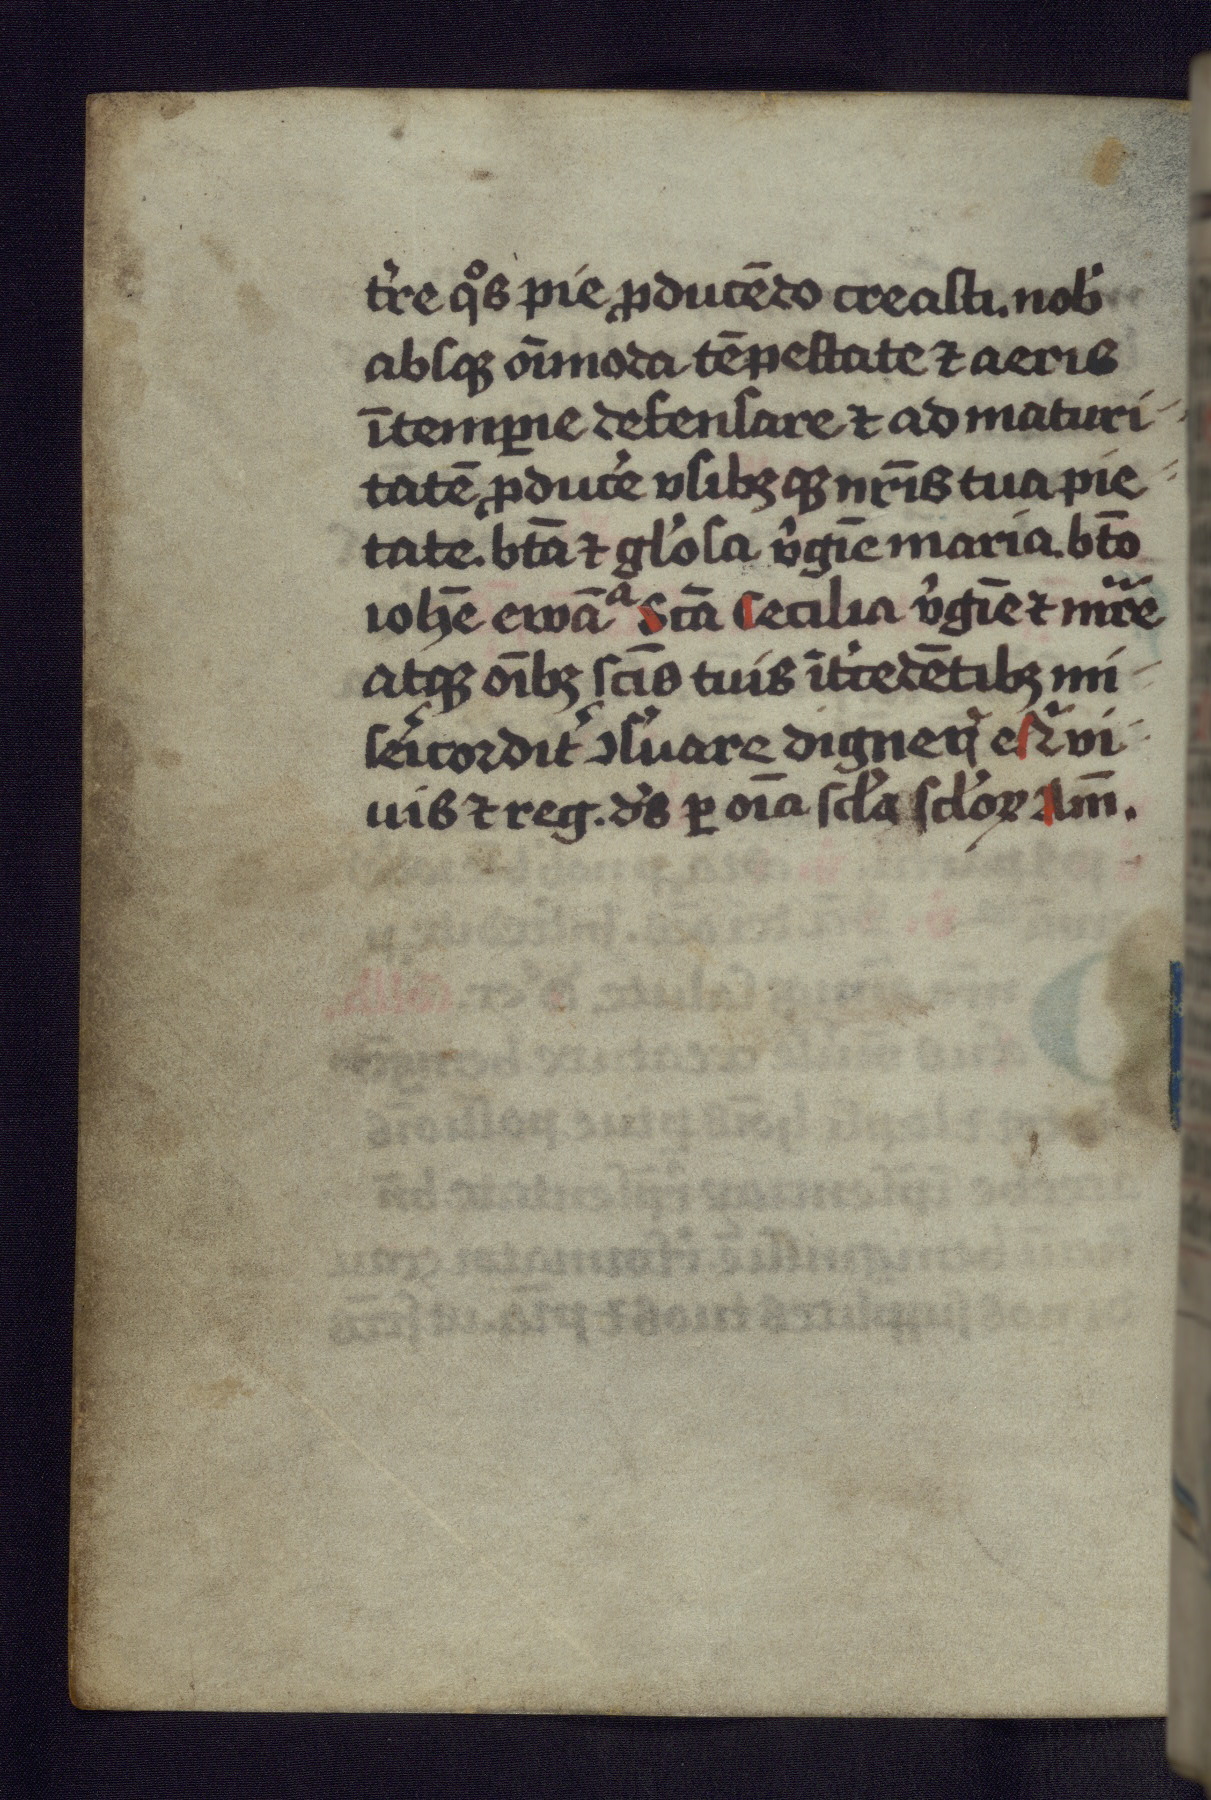 t̓re qͦs pie ꝓducēdo creasti. nob̓
absqꝫ oīmoda tēpestate ⁊ aeris
ītemꝑie defensare ⁊ ad maturi-
tatē ꝓduc̓e vsibꝫqꝫ nr̄is tua pie-
tate. btā ⁊ gl̓osa v̓gīe maria. btō
ioħe ewāᵃ Sctā Cecilia v̓gīe ⁊ mr̃e
atqꝫ oībꝫ sc̄is tuis īt̓cedētibꝫ mi-
s̓icordit̓ ↄs̓uare digner̓ q̓ es ⁊ vi-
uis ⁊ reg. d̓s ꝑ oīa scl̓a scl̓oꝝ Am̄.